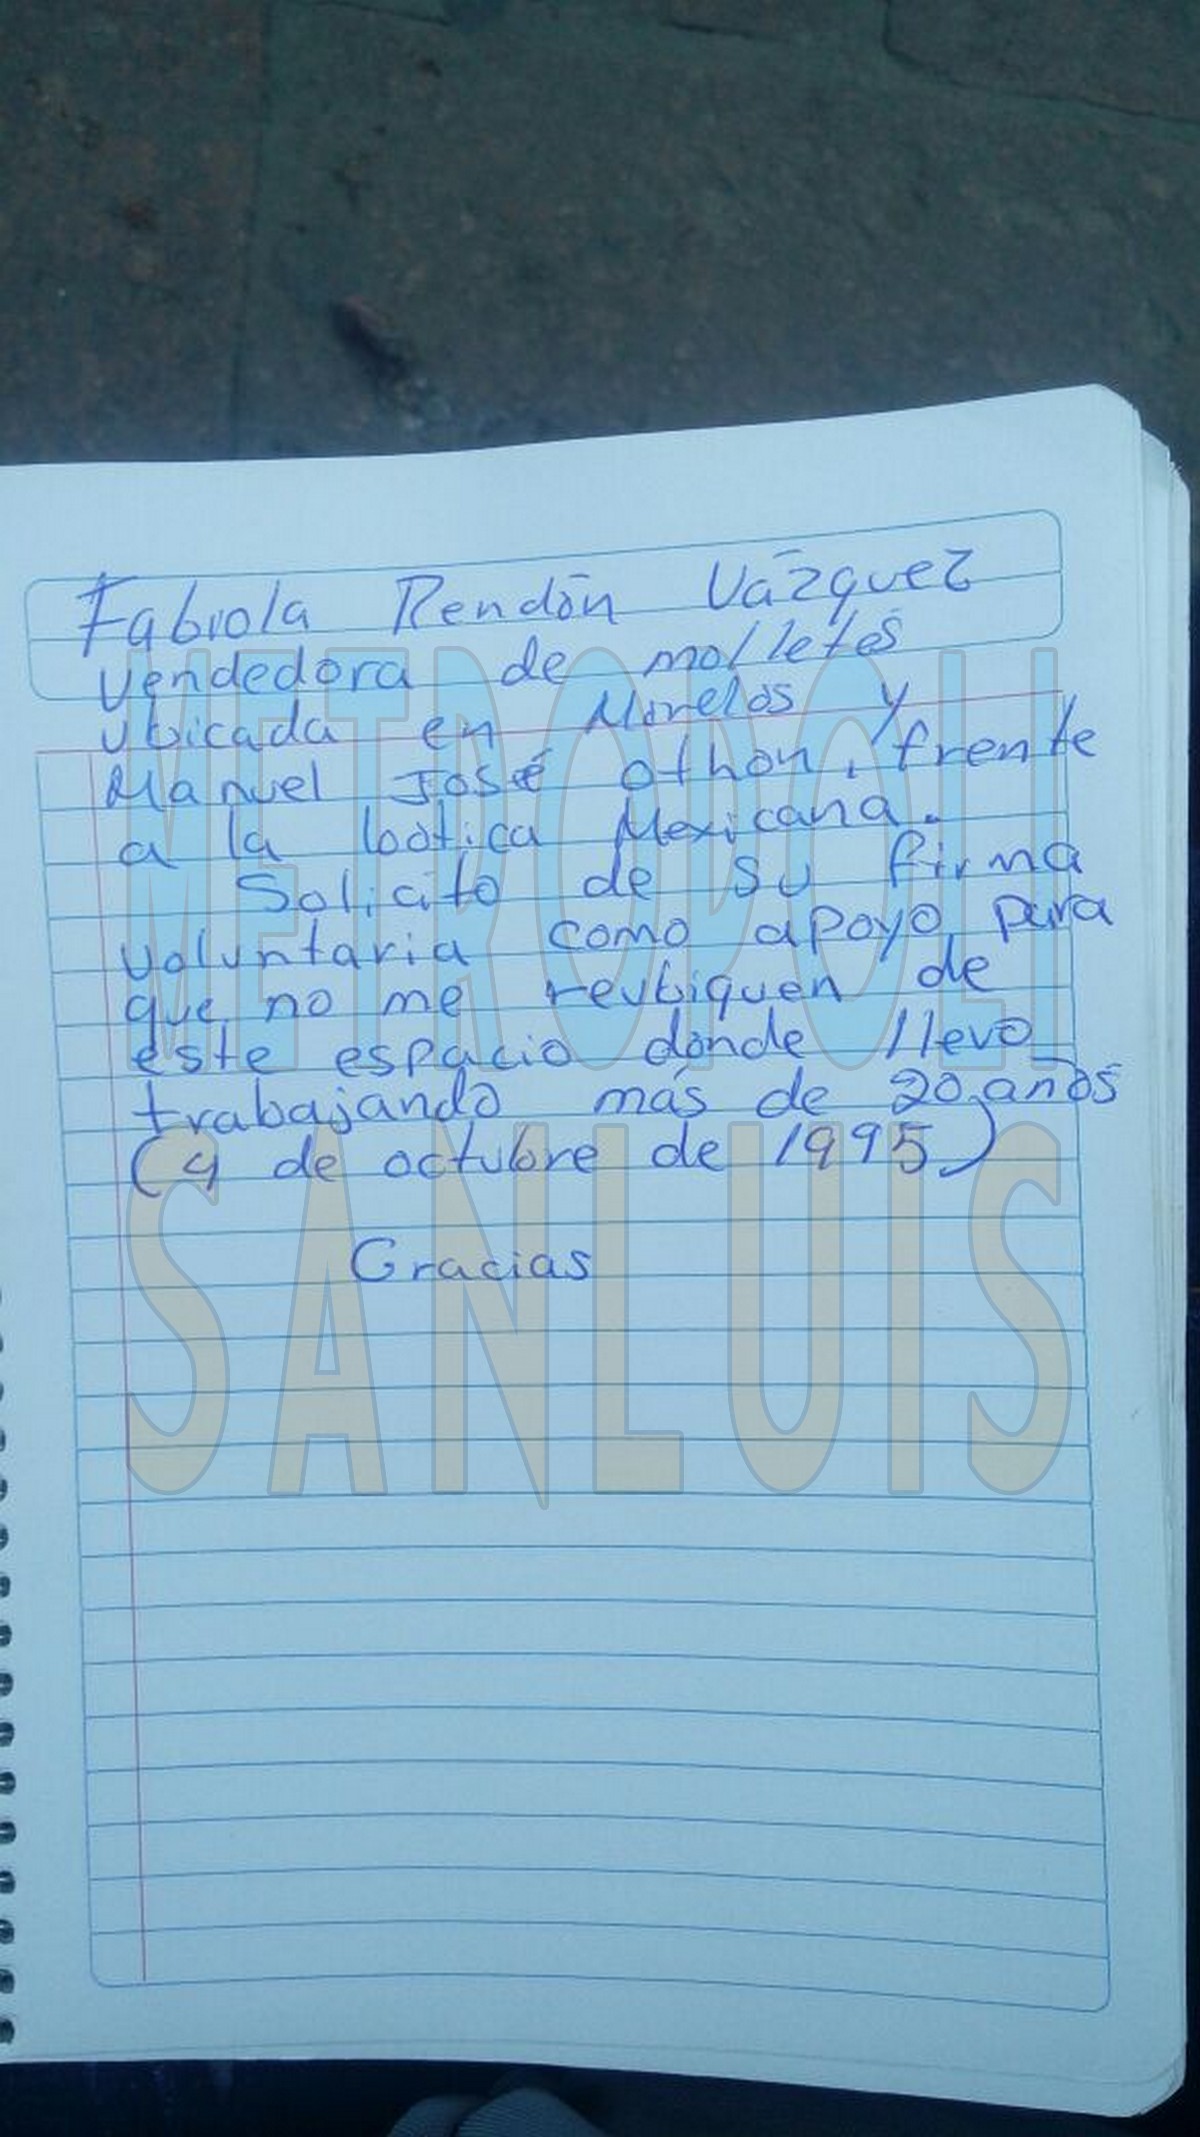 Fabiola Rendón Vázquez
vendedora de molletes
ubicada en Morelos y
Manuel José othon, frente
a la botica Mexicana.
Solicito de su firma
voluntaria como apoyo para
que no me reubiquen de
este espacio donde llevo
trabajando más de 20 años
(4 de octubre de 1995)
Gracias
METROPOLI
SANLUIS